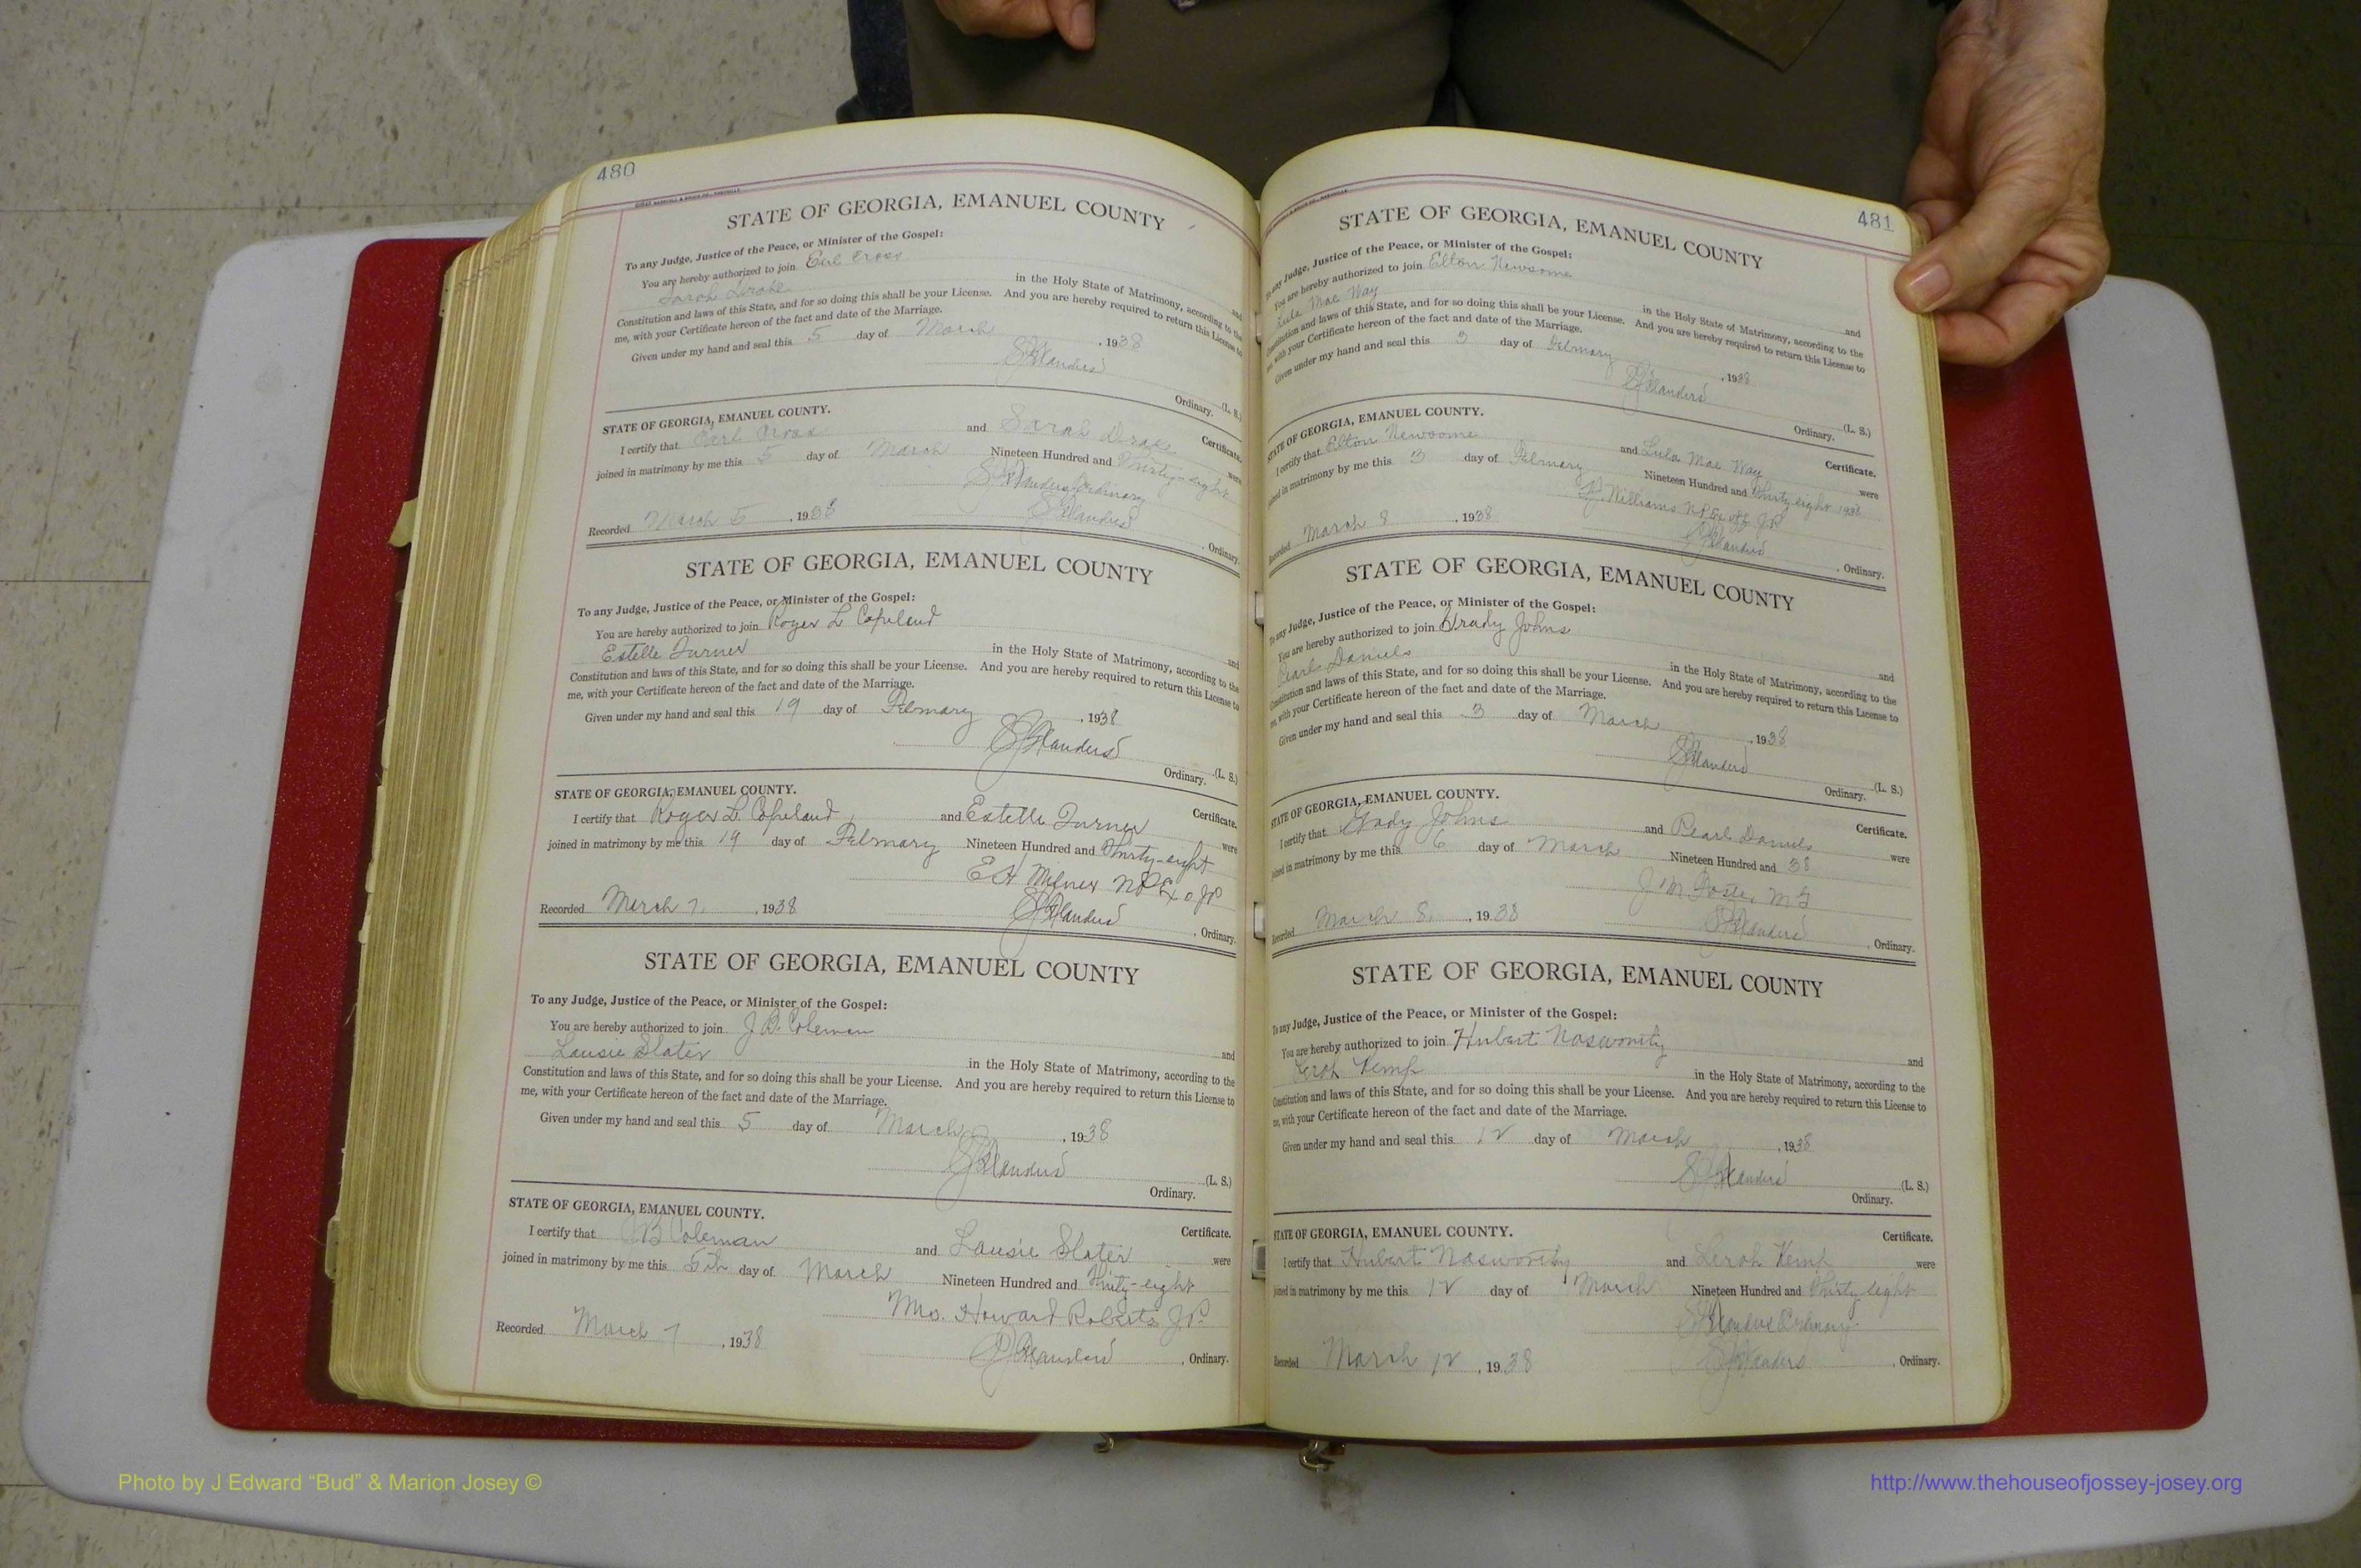 480
STATE OF GEORGIA, EMANUEL COUNTY
To any Judge, Justice of the Peace, or Minister of the Gospel:
You are hereby authorized to join Earl Cross and
Sarah Drake in the Holy State of Matrimony, according to the
Constitution and laws of this State, and for so doing this shall be your License. And you are hereby required to return this License to
me, with your Certificate hereon of the fact and date of the Marriage.
Given under my hand and seal this 5 day of March, 1938
Flanders (L. S.)
Ordinary.
STATE OF GEORGIA, EMANUEL COUNTY. Certificate.
I certify that Earl Cross and Sarah Drake were
joined in matrimony by me this 5 day of March Nineteen Hundred and Thirty-eight
Flanders Ordinary
Recorded March 5, 1938 Flanders, Ordinary.
STATE OF GEORGIA, EMANUEL COUNTY
To any Judge, Justice of the Peace, or Minister of the Gospel:
You are hereby authorized to join Roger L Copeland and
Estelle Turner in the Holy State of Matrimony, according to the
Constitution and laws of this State, and for so doing this shall be your License. And you are hereby required to return this License to
me, with your Certificate hereon of the fact and date of the Marriage.
Given under my hand and seal this 19 day of February, 1938
Flanders (L. S.)
Ordinary.
STATE OF GEORGIA, EMANUEL COUNTY. Certificate.
I certify that Roger L Copeland and Estelle Turner were
joined in matrimony by me this 19 day of February Nineteen Hundred and Thirty-eight
E H Milner NP Ex o JP
Recorded March 7, 1938 Flanders, Ordinary.
STATE OF GEORGIA, EMANUEL COUNTY
To any Judge, Justice of the Peace, or Minister of the Gospel:
You are hereby authorized to join J B Coleman and
Lausie Slater in the Holy State of Matrimony, according to the
Constitution and laws of this State, and for so doing this shall be your License. And you are hereby required to return this License to
me, with your Certificate hereon of the fact and date of the Marriage.
Given under my hand and seal this 5 day of March, 1938
Flanders (L. S.)
Ordinary.
STATE OF GEORGIA, EMANUEL COUNTY. Certificate.
I certify that J B Coleman and Lausie Slater were
joined in matrimony by me this 5th day of March Nineteen Hundred and Thirty-eight
Mrs. Howard Roberts J.P.
Recorded March 7, 1938 Flanders, Ordinary.
481
STATE OF GEORGIA, EMANUEL COUNTY
To any Judge, Justice of the Peace, or Minister of the Gospel:
You are hereby authorized to join Elton Newsome and
Lula Mae Way in the Holy State of Matrimony, according to the
Constitution and laws of this State, and for so doing this shall be your License. And you are hereby required to return this License to
me, with your Certificate hereon of the fact and date of the Marriage.
Given under my hand and seal this 3 day of February, 1938
Flanders (L. S.)
Ordinary.
STATE OF GEORGIA, EMANUEL COUNTY. Certificate.
I certify that Elton Newsome and Lula Mae Way were
joined in matrimony by me this 3 day of February Nineteen Hundred and Thirty eight 1938
Williams N.P. Ex off JP
Recorded March 8, 1938 Flanders, Ordinary.
STATE OF GEORGIA, EMANUEL COUNTY
To any Judge, Justice of the Peace, or Minister of the Gospel:
You are hereby authorized to join Grady Johns and
Pearl Daniels in the Holy State of Matrimony, according to the
Constitution and laws of this State, and for so doing this shall be your License. And you are hereby required to return this License to
me, with your Certificate hereon of the fact and date of the Marriage.
Given under my hand and seal this 3 day of March, 1938
Flanders (L. S.)
Ordinary.
STATE OF GEORGIA, EMANUEL COUNTY. Certificate.
I certify that Grady Johns and Pearl Daniels were
joined in matrimony by me this 6 day of March Nineteen Hundred and 38
J M M G
Recorded March 8, 1938 Flanders, Ordinary.
STATE OF GEORGIA, EMANUEL COUNTY
To any Judge, Justice of the Peace, or Minister of the Gospel:
You are hereby authorized to join Hubert Nasworthy and
Leroh Kemp in the Holy State of Matrimony, according to the
Constitution and laws of this State, and for so doing this shall be your License. And you are hereby required to return this License to
me, with your Certificate hereon of the fact and date of the Marriage.
Given under my hand and seal this 12 day of March, 1938
Flanders (L. S.)
Ordinary.
STATE OF GEORGIA, EMANUEL COUNTY. Certificate.
I certify that Hubert Nasworthy and Leroh Kemp were
joined in matrimony by me this 12 day of March Nineteen Hundred and Thirty eight
Flanders Ordinary
Recorded March 12, 1938 Flanders, Ordinary.
Photo by J Edward "Bud" & Marion Josey ©
http://www.thehouseofjossey-josey.org